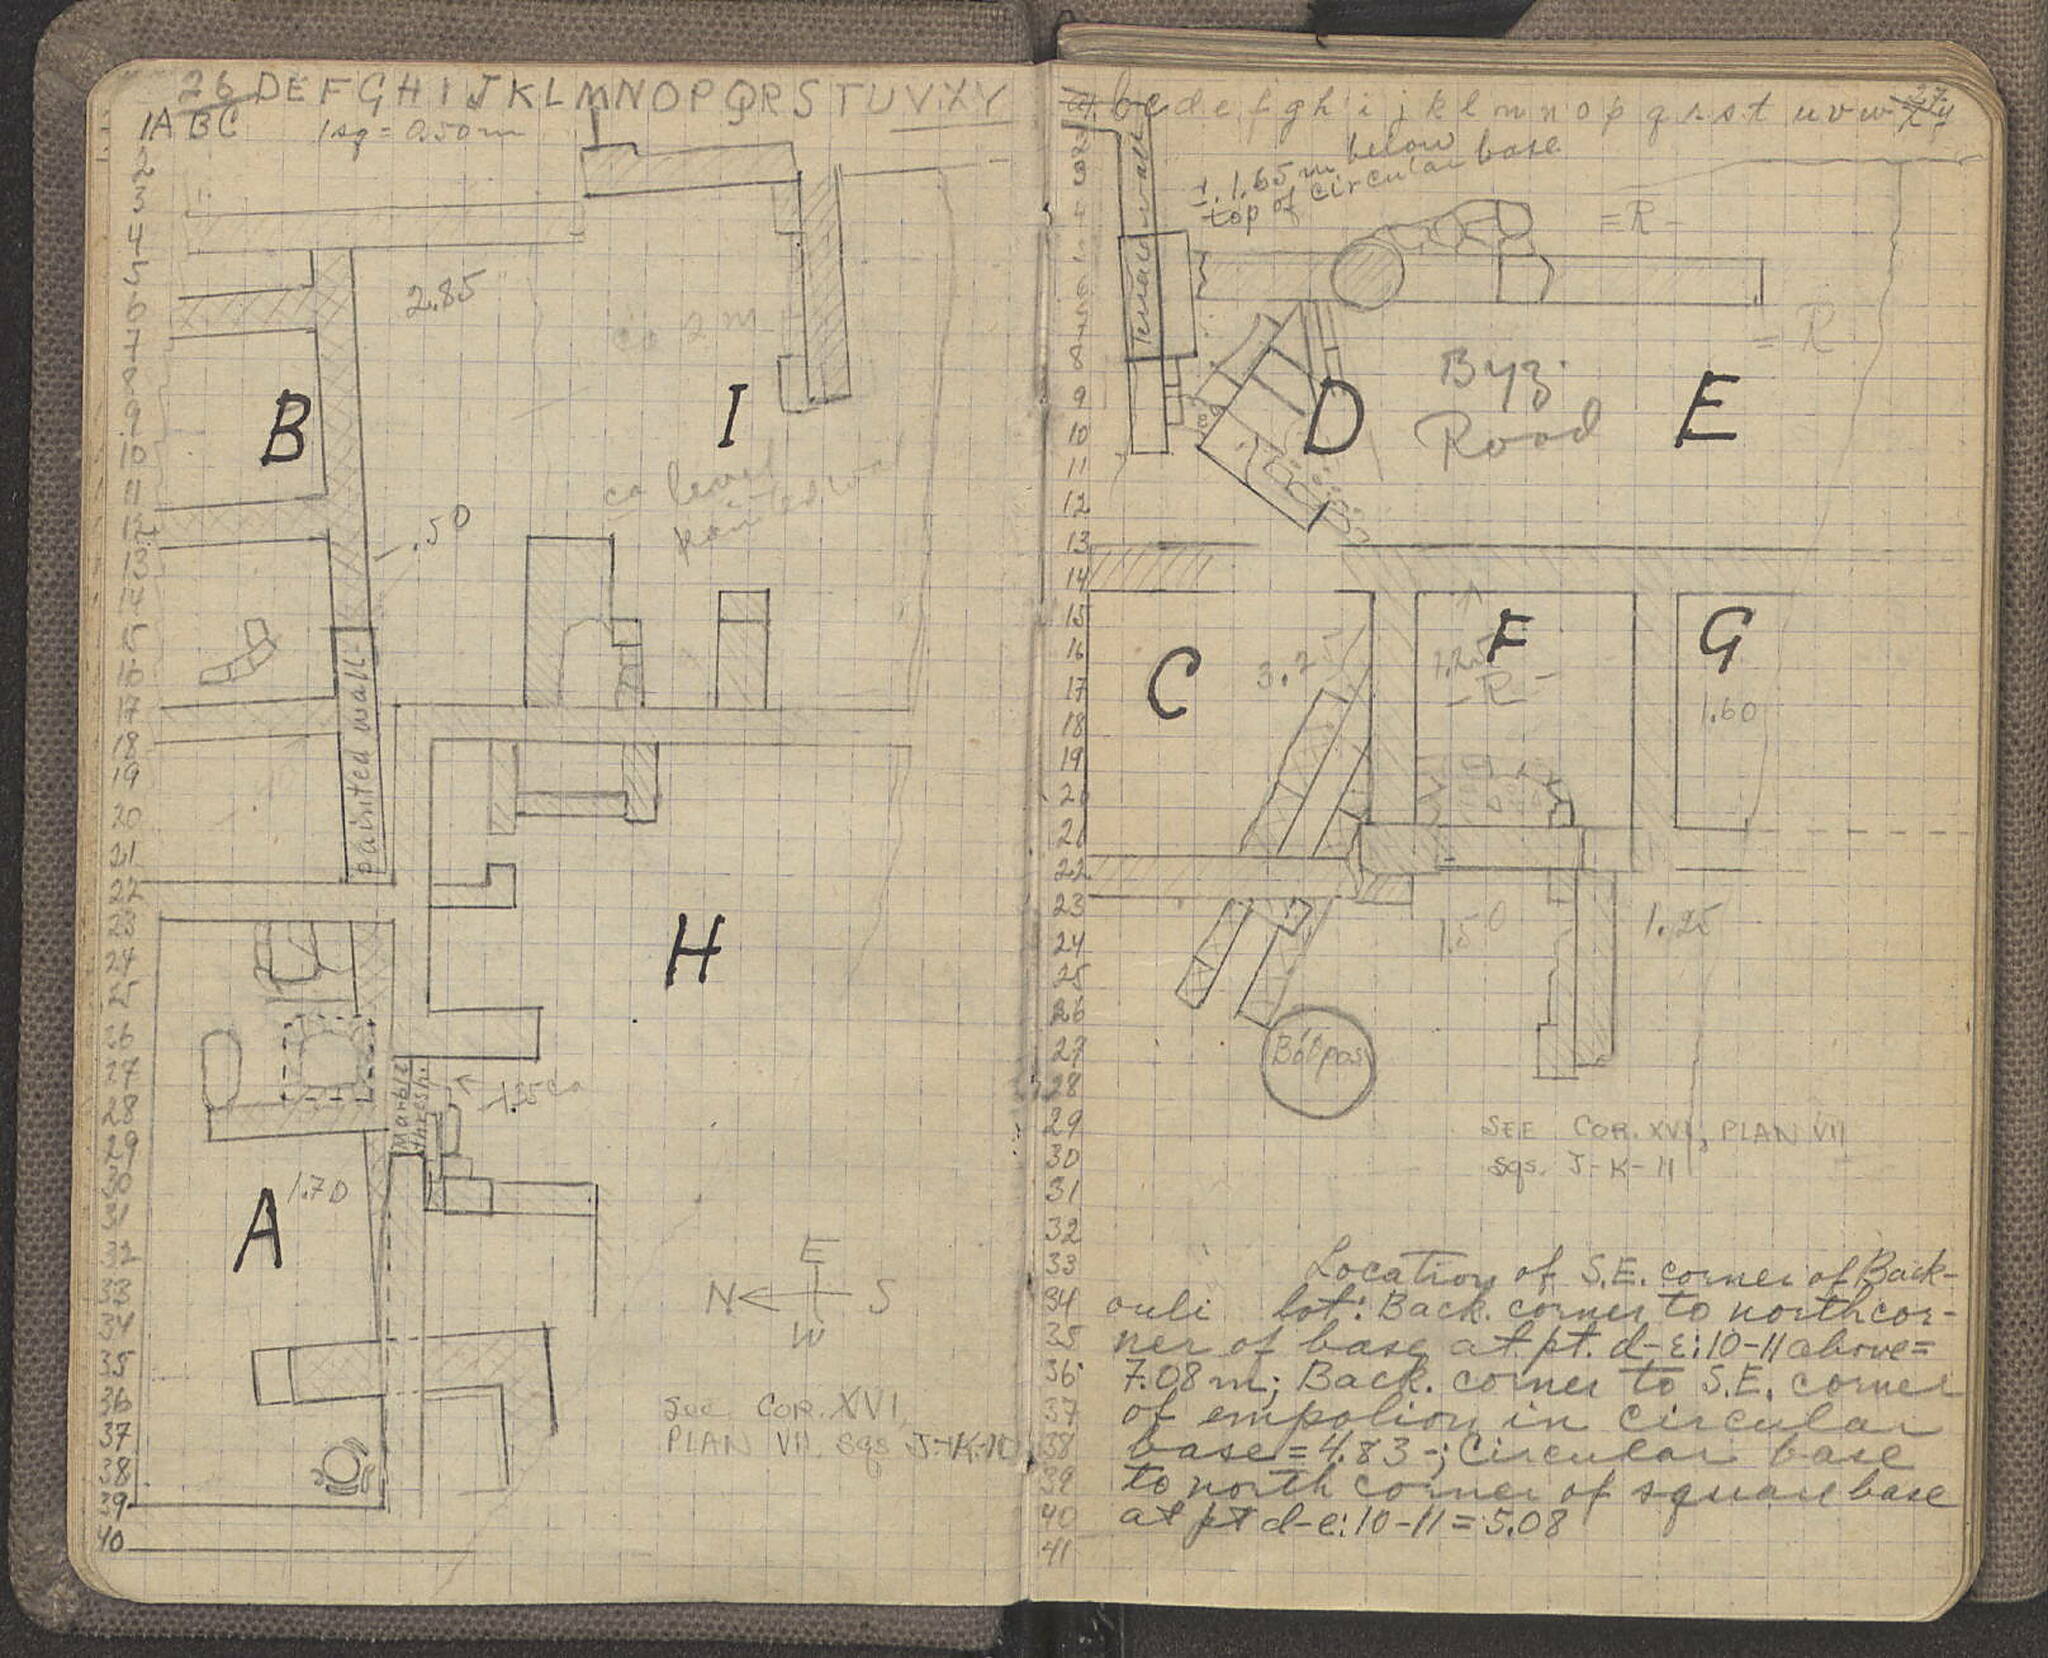 26 D E F G H I J K L M N O P Q R S T U V X Y
1 A B C 1 sq = 0.50 m
2
3
4
5
6
7
8
9
10
11
12
13
14
15
16
17
18
19
20
21
22
23
24
25
26
27
28
29
30
31
32
33
34
35
36
37
38
39
40
2.85
ca 2 m
B
I
ca level
painted wall
.50
painted wall
H
Marble
thresh.
1.35 ca
A
1.70
E
N S
W
SEE COR. XVI,
PLAN VII sqs J-K-10
27
a b c d e f g h i j k l m n o p q r s t u v w x y
2
3
5
8
9
10
11
12
13
14
15
16
17
18
19
20
21
22
23
24
25
26
27
28
29
30
31
32
33
34
35
36
37
38
39
40
41
± 1.65 m below
top of circular base
Terrace wall
= R -
= R
D
Byz.
Road
E
C
3.25
F
1.25
- R -
G
1.60
1.50
1.25
Βόθρος
SEE COR. XVI, PLAN VII
sqs. J-K-11
Location of S.E. corner of Back-
ouli lot: Back. corner to north cor-
ner of base at pt. d-e:10-11 above =
7.08 m; Back. corner to S.E. corner
of empolion in circular
base = 4.83-; Circular base
to north corner of square base
at pt d-e:10-11 = 5.08